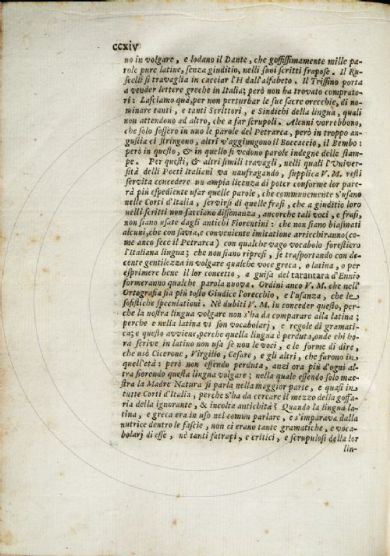 ccxiv
no in volgare, e lodano il Dante, che goffissimamente mille pa-
role pure latine, senza giuditio, nelli suoi scritti frapose. Il Ru-
scelli si travaglia in cacciar l'H dall'alfabeto. Il Trissino porta
a vender lettere greche in Italia; però non ha trovato comprato-
ri: Lasciamo quà, per non perturbar le sue sacre orecchie, di no-
minare tanti, e tanti Scrittori, e Sindichi della lingua, quali
non attendono ad altro, che a far scrupoli. Alcuni vorrebbono,
che solo fossero in uso le parole del Petrarca, però in troppo an-
gustia ci stringono, altri v'aggiungono il Boccaccio, il Bembo:
però in questo, & in quello si vedono parole indegne delle stam-
pe. Per questi, & altri simili travagli, nelli quali l'Univer-
sità delli Poeti Italiani và naufragando, supplica V. M. resti
servita concedere un ampia licenza di poter conforme lor pare-
rà più espediente usar quelle parole, che communemente s'usano
nelle Corti d'Italia, servirsi di quelle frasi, che a giuditio loro
nelli scritti non facciano dissonanza, ancorche tali voci, e frasi,
non siano usate dagli antichi Fiorentini: che non siano biasimati
alcuni, che con savia, e conveniente imitatione arricchiranno (co-
me anco fece il Petrarca) con qualche vago vocabolo forestiero
l'Italiana lingua; che non siano ripresi, se trasportando con de-
cente gentilezza in volgare qualche voce greca, o latina, o per
esprimere bene il lor concetto, a guisa del tarantara d'Ennio
formeranno qualche parola nuova. Ordini anco V. M. che nell'
Ortografia sia più tosto Giudice l'orecchio, e l'usanza, che le
sofistiche speculationi. Nè dubiti V. M. in conceder questo, per-
che la nostra lingua volgare non s'ha da comparare alla latina;
perche e nella latina vi son vocabolarj, e regole di gramati-
ca; e questo avviene, perche quella lingua è perduta, onde chi ho-
ra scrive in latino non usa se non le voci, e le forme di dire,
che usò Cicerone, Virgilio, Cesare, e gli altri, che furono in
quell'età: però non essendo perduta, anzi ora più d'ogni al-
tra fiorendo questa lingua volgare; nella quale essendo solo mae-
stra la Madre Natura si parla nella maggior parte, e quasi in
tutte Corti d'Italia, perche s'ha da cercare il mezzo della goffa-
ria della ignorante, & incolta antichità? Quando la lingua la-
tina, e greca era in uso nel comun parlare, e s'imparava dalla
nutrice dentro le fascie, non ci erano tante gramatiche, e voca-
bolarj di esse, nè tanti satrapi, e critici, e scrupolosi della lor
lin-